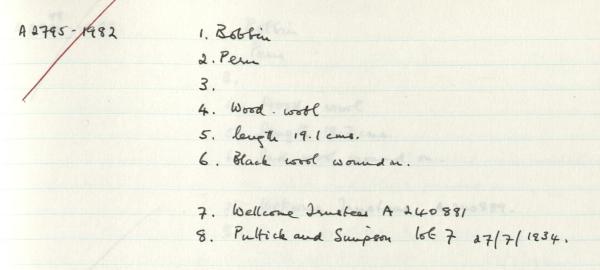 A2795-1982 1. Bobbin
2. Peru
3.
4. Wood. wool
5. length 19.1 cms.
6. Black wool wound on.
7. Wellcome Trustees A 240881
8. Puttick and Simpson lot 7 27/7/1934.